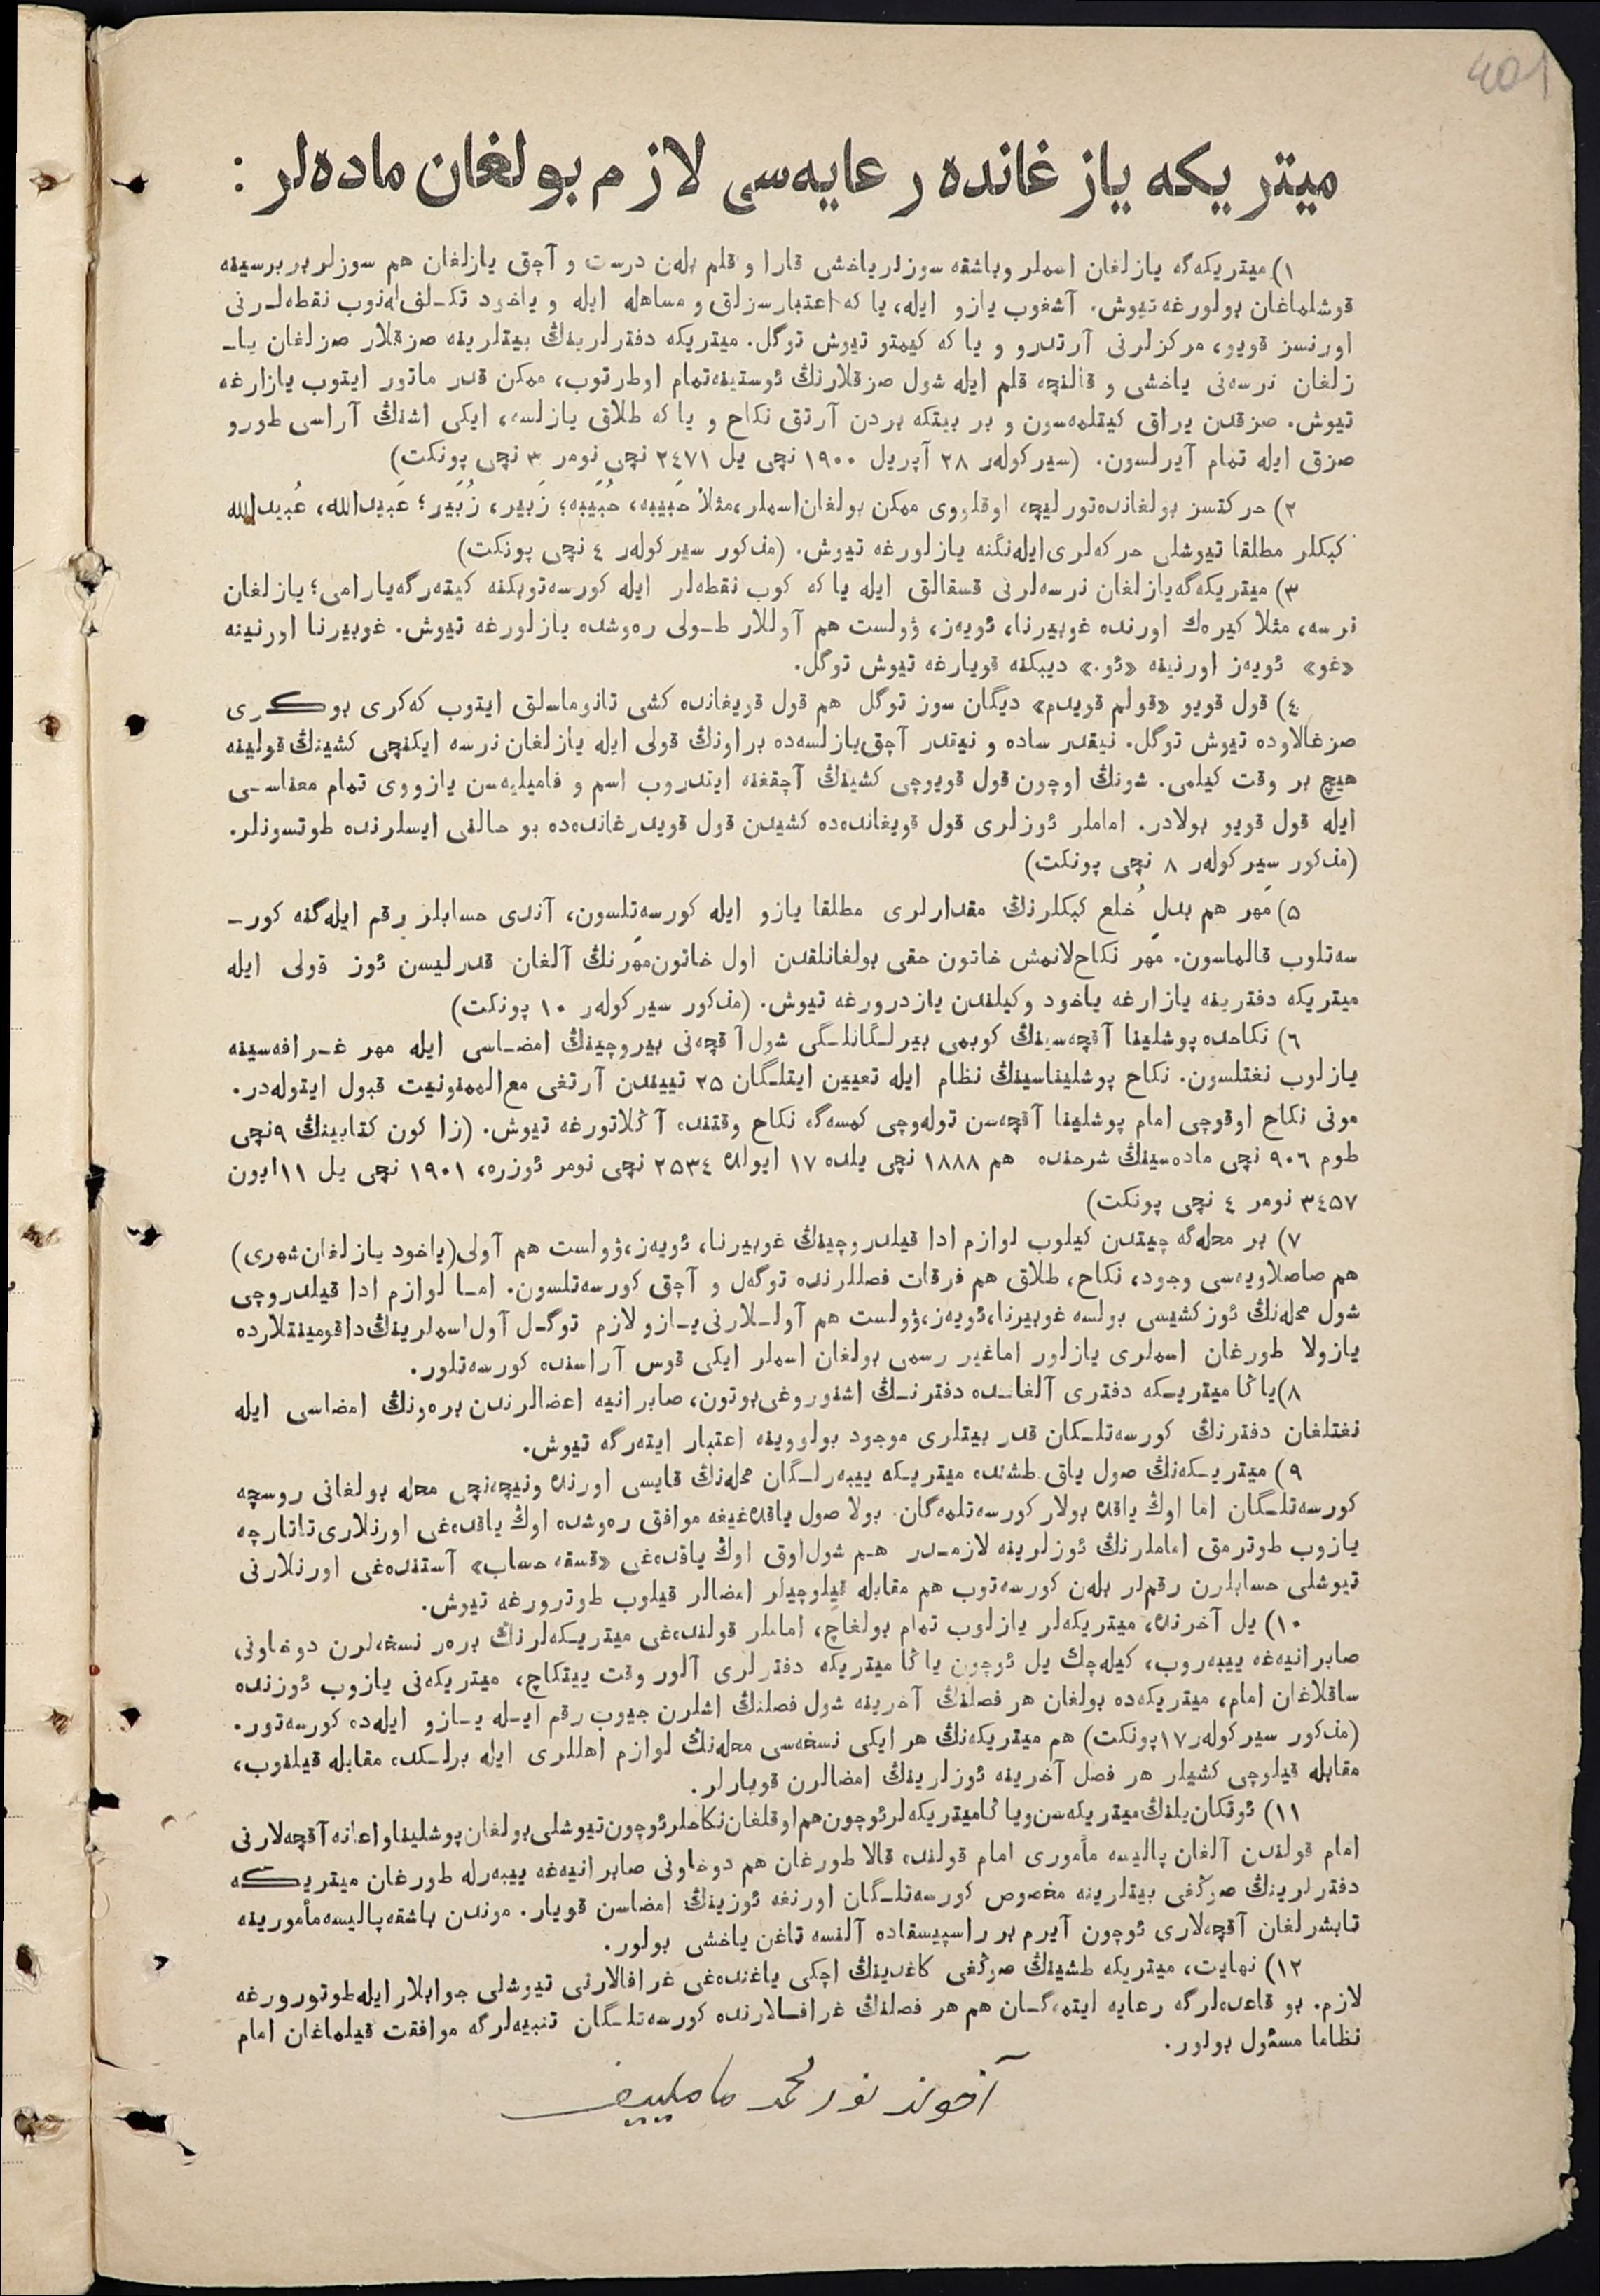 401
میتریکه یازغانده رعایه‌سی لازم بولغان ماده‌لر :
١) میتریکه‌گه یازلغان اسملر وباشقه سوزلر یاخشی قارا و قلم بلەن درست و آچق یازلغان هم سوزلر بر برسینه
قوشلماغان بولورغه تیوش. آشغوب یازو ایله، یا که اعتبارسزلق و مساهله ایله و یاخود تکـلف‌له‌نوب نقطه‌لـرنی
اورنسز قویو، مرکزلرنی آرتدرو و یا که کیمتو تیوش توگل. میتریکه دفترلرینڭ بیتلرینه صزقلار صزلغان یاـ
زلغان نرسه‌نی یاخشی و قالنچه قلم ایله شول صزقلارنڭ ئوستینه‌تمام اوطرتوب، ممکن قدر ماتور ایتوب یازارغه
تیوش. صزقدن یراق کیتلمه‌سون و بر بیتکه بردن آرتق نکاح و یا که طلاق یازلسه، ایکی اشنڭ آراسی طورو
صزق ایله تمام آیرلسون. (سیرکولەر ٢٨ آپریل ١٩٠٠ نچی یل ٢٤٧١ نچی نومر ٣ نچی پونکت)
٢) حرکتسز بولغانده‌تورلیچه اوقلووی ممکن بولغان‌اسملر، مثلا حَبیبه، حُبَیبه؛ زَبیر، زُبَیر؛ عَبیدالله، عُبیدالله
کبکلر مطلقا تیوشلی حرکه‌لری‌ایله‌نگنه یازلورغه تیوش. (مذکور سیرکولەر ٤ نچی پونکت)
٣) میتریکه‌گه‌یازلغان نرسه‌لرنی قسقالق ایله یا که کوب نقطه‌لر ایله کورسه‌توبکنه کیتەرگه‌یارامی؛ یازلغان
نرسه، مثلا کیره‌ك اورنده غوبیرنا، ئویه‌ز، ۋولست هم آوللار طـولی ره‌وشده یازلورغه تیوش. غوبیرنا اورنینه
«غو» ئویه‌ز اورنینه «ئو.» دیبکنه قویارغه تیوش توگل.
٤) قول قویو «قولم قویدم» دیگان سوز توگل هم قول قویغانده کشی تانوماسلق ایتوب که‌کری بوکـری
صزغالاوده تیوش توگل. نیقدر ساده و نیتدر آچق‌یازلسه‌ده براونڭ قولی ایله یازلغان نرسه ایکنچی کشینڭ قولینه
هیچ بر وقت کیلمی. شونڭ اوچون قول قویوچی کشینڭ آچقغنه ایتدروب اسم و فامیلیه‌سن یازووی تمام معناسـی
ایله قول قویو بولادر. اماملر ئوزلری قول قویغانده‌ده کشیدن قول قویدرغانده‌ده بو حالنی ایسلرنده طوتسونلر.
(مذکور سیرکولەر ٨ نچی پونکت)
٥) مَهر هم بدلِ خُلع کبکلرنڭ مقدارلری مطلقا یازو ایله کورسه‌تلسون، آندی حسابلر رقم ایله‌گنه کورـ
سه‌تلوب قالماسون. مهر نکاح‌لانمش خاتون حقی بولغانلقدن اول خاتون‌مهرنڭ آلغان قدرلیسن ئوز قولی ایله
میتریکه دفترینه یازارغه یاخود وکیلندن یازدرورغه تیوش. (مذکور سیرکولەر ١٠ پونکت)
٦) نکاحده پوشلینا آقچه‌سینڭ کوبمی بیرلـگانلـگی شول آقچه‌نی بیروچینڭ امضـاسی ایله مهر غـرافه‌سینه
یازلوب نغتلسون. نکاح پوشلیناسینڭ نظام ایله تعیین ایتلـگان ٢٥ تییندن آرتغی مع‌الممنونیت قبول ایتوله‌در.
مونی نکاح اوقوچی امام پوشلینا آقچه‌سن توله‌وچی کمسه‌گه نکاح وقتنده آڭلاتورغه تیوش. (زا کون کتابینڭ ٩نچی
طوم ٩٠٦ نچی ماده‌سینڭ شرحنده هم ١٨٨٨ نچی یلده ١٧ ایولده ٢٥٣٤ نچی نومر ئوزره، ١٩٠١ نچی یل ١١ایون
٣٤٥٧ نومر ٤ نچی پونکت)
٧) بر محله‌گه چیتدن کیلوب لوازم ادا قیلدروچینڭ غوبیرنا، ئویه‌ز، ۋولست هم آولی(یاخود یازلغان‌شهری)
هم صاصلاویه‌سی وجود، نکاح، طلاق هم فرقات فصللرنده توگه‌ل و آچق کورسه‌تلسون. امـا لوازم ادا قیلدروچی
شول محله‌نڭ ئوزکشیسی بولسه غوبیرنا، ئویه‌ز، ۋولست هم آولـلارنی‌یـازو لازم توگـل آول‌اسملرینڭ‌داقومینتلارده
یازولا طورغان اسملری یازلور اماغیر رسمی بولغان اسملر ایکی قوس آراسنده کورسه‌تلور.
٨)یاڭا میتریـکه دفتری آلغانـده دفترنـڭ اشنوروغی‌بوتون، صابرانیه اعضالرندن برەونڭ امضاسی ایله
نغتلغان دفترنڭ کورسه‌تلـگان قدر بیتلری موجود بولووینه اعتبار ایتەرگه تیوش.
٩) میتریـکه‌نڭ صول یاق طشنده میتریـکه ییبەرلـگان محله‌نڭ قایسی اورنده ونیچه‌نچی محله بولغانی روسچه
کورسه‌تلـگان اما اوڭ یاقده بولار کورسه‌تلمه‌گان. بولا صول یاقده‌غیغه موافق ره‌وشده اوڭ یاقده‌غی اورنلاری‌تاتارچه
یازوب طوترمق اماملرنڭ ئوزلرینه لازمـدر هـم شول‌اوق اوڭ یاقده‌غی «قسقه حساب» آستنده‌غی اورنلارنی
تیوشلی حسابلرن رقملر بلەن کورسه‌توب هم مقابله قیلوچیلر امضالر قیلوب طوترورغه تیوش.
١٠) یل آخرنده، میتریکه‌لر یازلوب تمام بولغاچ، اماملر قولنده‌غی میتریـکه‌لرنڭ برەر نسخه‌لرن دوخاونی
صابرانیه‌غه ییبەروب، کیله‌چك یل ئوچون یاڭا میتریکه دفترلری آلور وقت ییتکاچ، میتریکه‌نی یازوب ئوزنده
ساقلاغان امام، میتریکه‌ده بولغان هر فصلنڭ آخرینه شول فصلنڭ اشلرن جیوب رقم ایـله یـازو ایله‌ده کورسه‌تور.
(مذکور سیرکولەر١٧پونکت) هم میتریکه‌نڭ هر ایکی نسخه‌سی محله‌نڭ لوازم اهللری ایله برلـکده مقابله قیلنوب،
مقابله قیلوچی کشیلر هر فصل آخرینه ئوزلرینڭ امضالرن قویارلر.
١١) ئوتکان‌یلنڭ‌میتریکه‌سن‌ویاڭامیتریکه‌لرئوچون‌هم‌اوقلغان‌نکاحلرئوچون‌تیوشلی‌بولغان‌پوشلیناواعانه‌آقچه‌لارنی
امام قولندن آلغان پالیسه مأموری امام قولنده قالا طورغان هم دوخاونی صابرانیه‌غه ییبەرله طورغان میتریـکه
دفترلرینڭ صوڭغی بیتلرینه مخصوص کورسه‌تلـگان اورنغه ئوزینڭ امضاسن قویار. موندن باشقه‌پالیسه‌مأمورینه
تابشرلغان آقچه‌لاری ئوچون آیرم بر راسپیسقاده آلنسه تاغن یاخشی بولور.
١٢) نهایت، میتریکه طشینڭ صوڭغی کاغدینڭ اچکی یاغنده‌غی غرافالارنی تیوشلی جوابلار ایله‌طوتورورغه
لازم. بو قاعده‌لرگه رعایه ایتمه‌گـان هم هر فصلنڭ غرافـالارنده کورسه‌تلـگان تنبیه‌لرگه موافقت قیلماغان امام
نظاما مسئول بولور.
آخوند نور محمد ماملییف